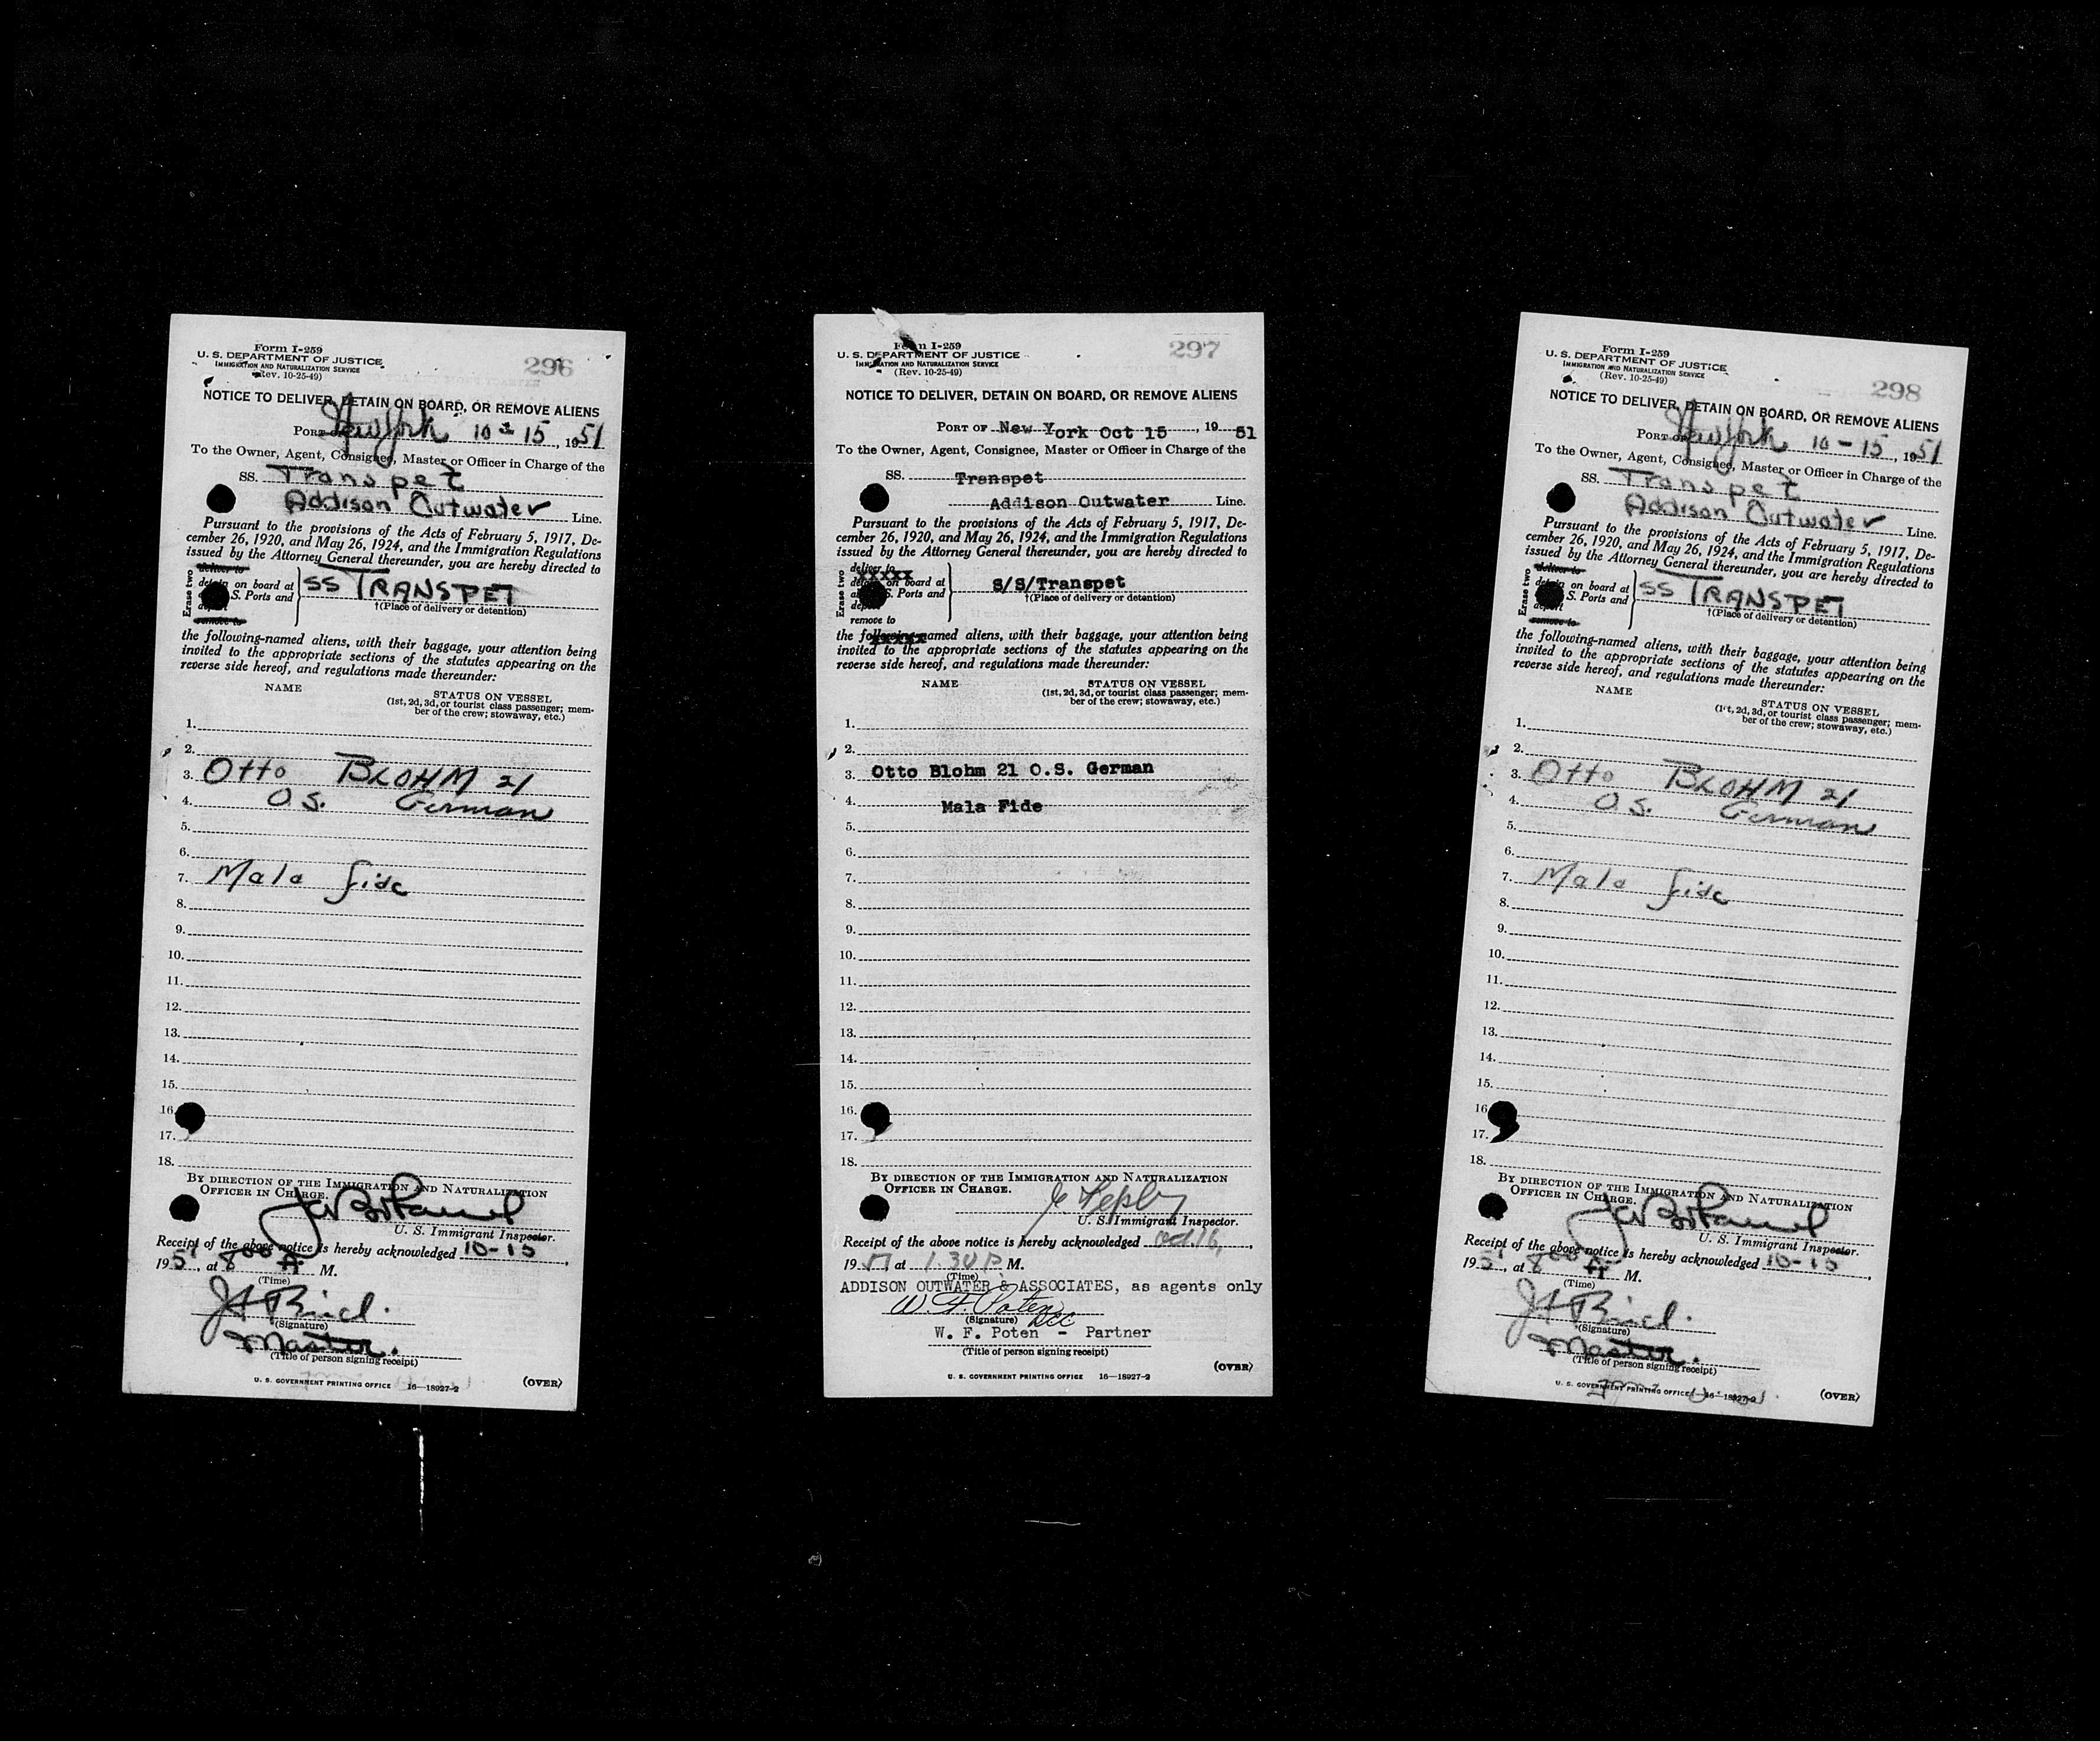 Form I-259
U. S. DEPARTMENT OF JUSTICE
IMMIGRATION AND NATURALIZATION SERVICE
(Rev. 10-25-49)
296
NOTICE TO DELIVER, DETAIN ON BOARD, OR REMOVE ALIENS
PORT OF New York 10-15, 1951
To the Owner, Agent, Consignee, Master or Officer in Charge of the
SS. Transpet
Addison Outwater Line.
Pursuant to the provisions of the Acts of February 5, 1917, De-
cember 26, 1920, and May 26, 1924, and the Immigration Regulations
issued by the Attorney General thereunder, you are hereby directed to
Erase two
deliver to
detain on board at
S. Ports and
remove to
SS TRANSPET
†(Place of delivery or detention)
the following-named aliens, with their baggage, your attention being
invited to the appropriate sections of the statutes appearing on the
reverse side hereof, and regulations made thereunder:
NAME
STATUS ON VESSEL
(1st, 2d, 3d, or tourist class passenger; mem-
ber of the crew; stowaway, etc.)
1.
2.
3. Otto BLOHM 21
4. O.S. German
5.
6.
7. Mala fide
8.
9.
10.
11.
12.
13.
14.
15.
16.
17.
18.
BY DIRECTION OF THE IMMIGRATION AND NATURALIZATION
OFFICER IN CHARGE.
U. S. Immigrant Inspector.
Receipt of the above notice is hereby acknowledged 10-15,
1951, at 800 A M.
(Time)
(Signature)
Master.
(Title of person signing receipt)
U. S. GOVERNMENT PRINTING OFFICE 16—18927-2
(OVER)
Form I-259
U. S. DEPARTMENT OF JUSTICE
IMMIGRATION AND NATURALIZATION SERVICE
(Rev. 10-25-49)
297
NOTICE TO DELIVER, DETAIN ON BOARD, OR REMOVE ALIENS
PORT OF New York Oct 15, 1951
To the Owner, Agent, Consignee, Master or Officer in Charge of the
SS. Transpet
Addison Outwater Line.
Pursuant to the provisions of the Acts of February 5, 1917, De-
cember 26, 1920, and May 26, 1924, and the Immigration Regulations
issued by the Attorney General thereunder, you are hereby directed to
Erase two
deliver to
xxxxx
detain on board at
S. Ports and
deport
remove to
S/S/Transpet
†(Place of delivery or detention)
the following-named aliens, with their baggage, your attention being
xxxxx
invited to the appropriate sections of the statutes appearing on the
reverse side hereof, and regulations made thereunder:
NAME
STATUS ON VESSEL
(1st, 2d, 3d, or tourist class passenger; mem-
ber of the crew; stowaway, etc.)
1.
2.
3. Otto Blohm 21 O.S. German
4. Mala Fide
5.
6.
7.
8.
9.
10.
11.
12.
13.
14.
15.
16.
17.
18.
BY DIRECTION OF THE IMMIGRATION AND NATURALIZATION
OFFICER IN CHARGE.
U. S. Immigrant Inspector.
Receipt of the above notice is hereby acknowledged Oct. 16,
19 at 1.30 P M.
(Time)
ADDISON OUTWATER & ASSOCIATES, as agents only
W. F. Poten
(Signature)
W. F. Poten - Partner
(Title of person signing receipt)
(OVER)
U. S. GOVERNMENT PRINTING OFFICE 16—18927-2
Form I-259
U. S. DEPARTMENT OF JUSTICE
IMMIGRATION AND NATURALIZATION SERVICE
(Rev. 10-25-49)
298
NOTICE TO DELIVER, DETAIN ON BOARD, OR REMOVE ALIENS
PORT OF New York 10-15, 1951
To the Owner, Agent, Consignee, Master or Officer in Charge of the
SS. Transpet
Addison Outwater Line.
Pursuant to the provisions of the Acts of February 5, 1917, De-
cember 26, 1920, and May 26, 1924, and the Immigration Regulations
issued by the Attorney General thereunder, you are hereby directed to
Erase two
deliver to
detain on board at
S. Ports and
deport
remove to
SS TRANSPET
†(Place of delivery or detention)
the following-named aliens, with their baggage, your attention being
invited to the appropriate sections of the statutes appearing on the
reverse side hereof, and regulations made thereunder:
NAME
STATUS ON VESSEL
(1st, 2d, 3d, or tourist class passenger; mem-
ber of the crew; stowaway, etc.)
1.
2.
3. Otto BLOHM 21
4. O.S. German
5.
6.
7. Mala fide
8.
9.
10.
11.
12.
13.
14.
15.
16.
17.
18.
BY DIRECTION OF THE IMMIGRATION AND NATURALIZATION
OFFICER IN CHARGE.
U. S. Immigrant Inspector.
Receipt of the above notice is hereby acknowledged 10-15,
1951, at 800 A M.
(Time)
(Signature)
Master.
(Title of person signing receipt)
U. S. GOVERNMENT PRINTING OFFICE 16—18927-2
(OVER)